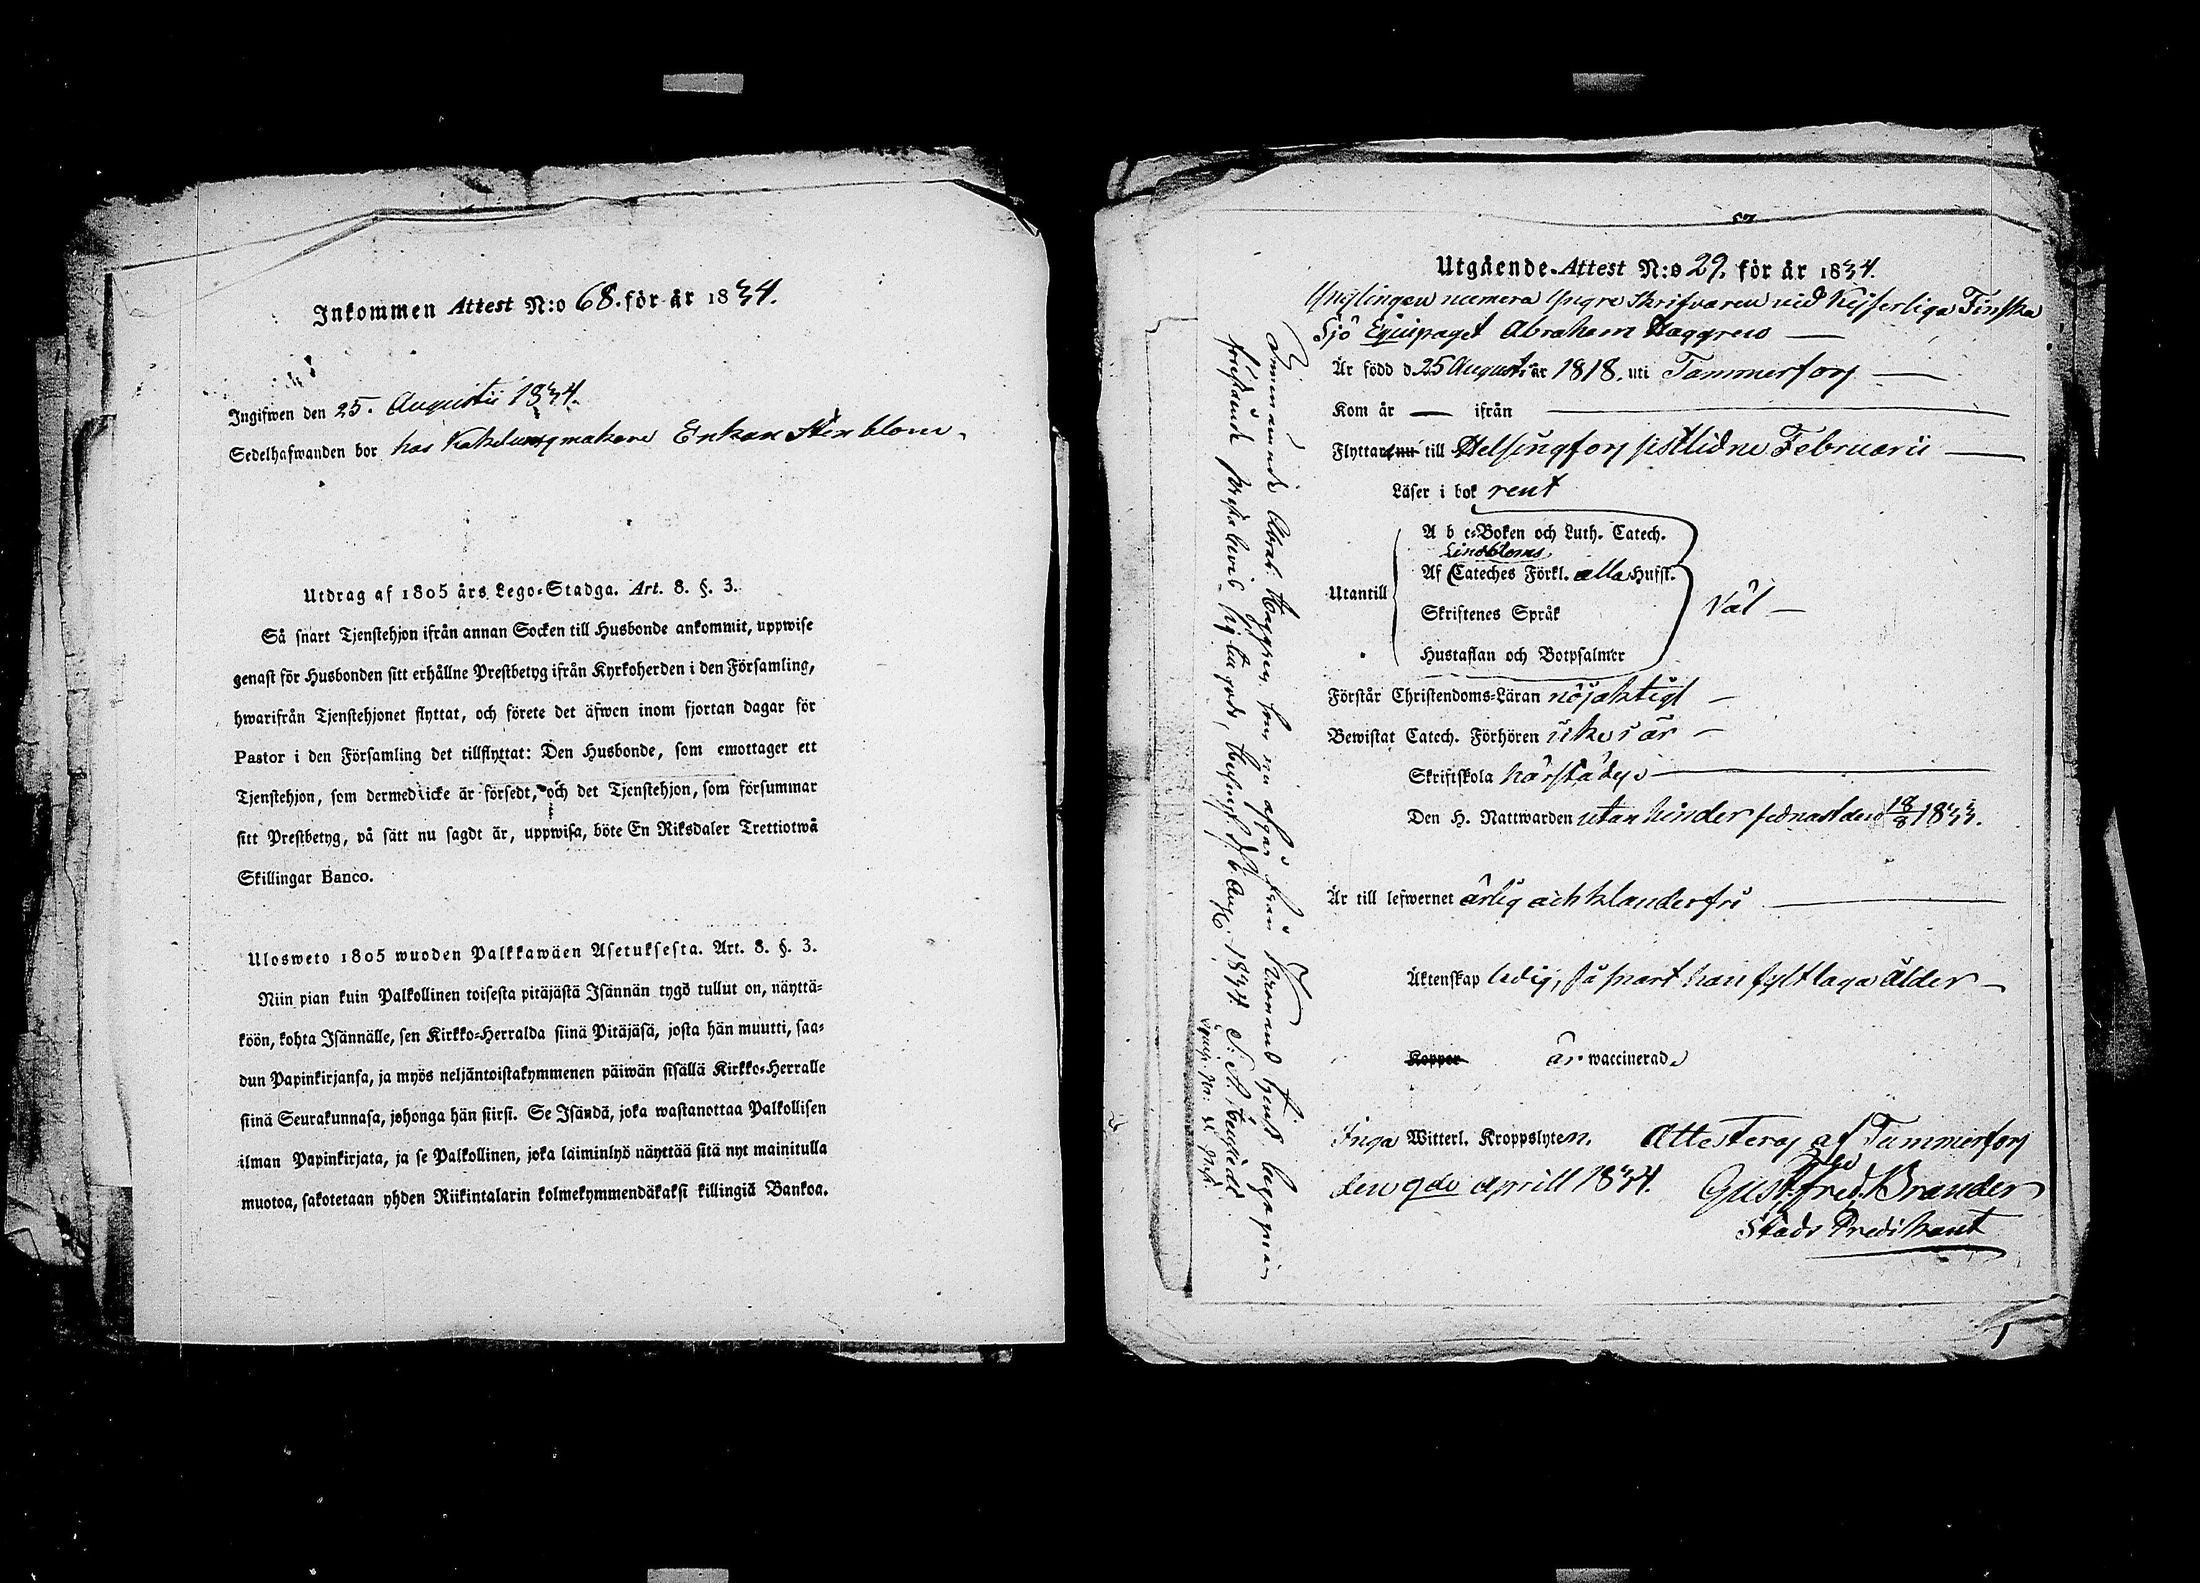 Inkommen Attest N:o 68. för år 1834.
Ingifwen den 25. Augustii 1834.
Sedelhafwanden bor hos Kakelungmakare Enkan Stenblom.
Utdrag af 1805 års Lego-Stadga. Art. 8. §. 3.
Så snart Tjenstehjon ifrån annan Socken till Husbonde ankommit, uppwise
genast för Husbonden sitt erhållne Prestbetyg ifrån Kyrkoherden i den Församling,
hwarifrån Tjenstehjonet flyttat, och förete det äfwen inom fjortan dagar för
Pastor i den Församling det tillflyttat: Den Husbonde, som emottager ett
Tjenstehjon, som dermed icke är försedt, och det Tjenstehjon, som försummar
sitt Prestbetyg, på sätt nu sagdt är, uppwisa, böte En Riksdaler Trettiotwå
Skillingar Banco.
Ulosweto 1805 wuoden Palkkawäen Asetuksesta. Art. 8. §. 3.
Niin pian kuin Palkollinen toisesta pitäjästä Isännän tygö tullut on, näyttä-
köön, kohta Isännälle, sen Kirkko-Herralda siinä Pitäjäsä, josta hän muutti, saa-
dun Papinkirjansa, ja myös neljäntoistakymmenen päiwän sisällä Kirkko-Herralle
siinä Seurakunnasa, johonga hän siirsi. Se Isändä, joka wastanottaa Palkollisen
ilman Papinkirjata, ja se Palkollinen, joka laiminlyö näyttää sitä nyt mainitulla
muotoa, sakotetaan yhden Riikintalarin kolmekymmendäkaksi killingiä Bankoa.
57
Utgående-Attest N:o 29. för år 1834.
Ynglingen numera Yngre Skrifvaren vid Kejserliga Finska
Sjö Equipaget Abraham Haggren
Är född d. 25 Augusti år 1818. uti Tammerfors
Kom år — ifrån
Flyttar nu till Helsingfors sistlidne Februarii
Läser i bok rent
A b c-Boken och Luth. Catech.
Lindbloms
Af Cateches Förkl. alla Hufst.
Utantill
Skriftenes Språk
Väl
Hustaflan och Botpsalmer
Förstår Christendoms-Läran nöjaktigt
Bewistat Catech. Förhören
Skriftskola härstädes
Den H. Nattwarden utan hinder sednast den 18/8 1833.
Är till lefwernet ärlig och klanderfri
Äktenskap ledig, så snart han fyllt laga ålder
Kopper är waccinerad
Inga Witterl. Kroppslyten. Attesteras af Tammerfors
den 9de Aprill 1834. Gust. Fred. Brander
Stads Predikant
Abrah. Haggren, som nu afgår från Kronans tjenst